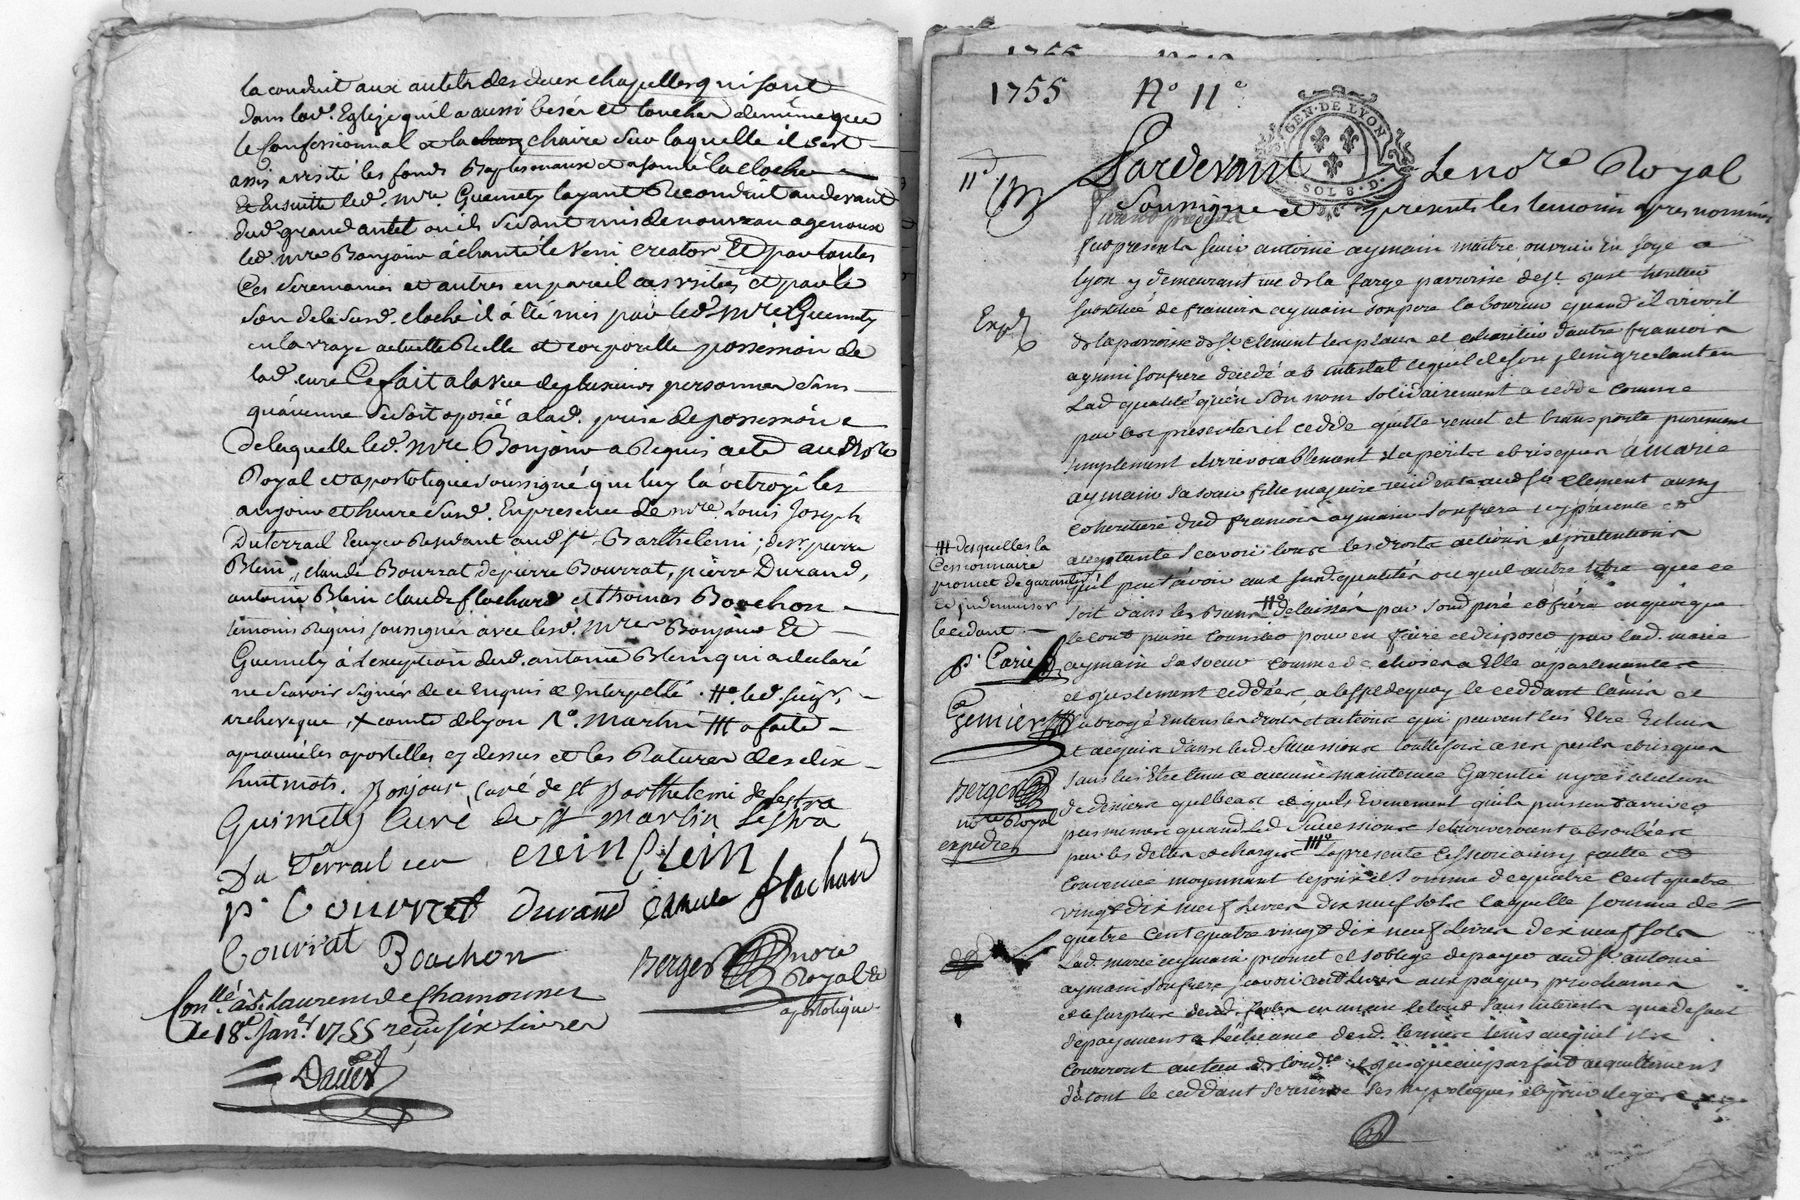 la conduit aux autels des deux chapelles qui sont
dans lad. Eglize quil a aussi besér et toucher de même que
le Confessionnal et la chaire sur laquelle il sest
assis a visité les fonds Baptismaux et a sonné la cloche
Et Ensuitte led. mre. Guemety layant Reconduit au devant
dud. grand autel ou ils sestant mis de nouveau a genoux
led. mre Bonjour à chanté le Veni creator Et par toutes
Ces seremonies et autres en pareil cas usitées et par le
son de la susd. cloche il à été mis par led. mre Guemety
en la vraye actuelle Réelle et corporelle possession de
lad. cure Ce fait a la vue de plusieurs personnes sans
quaucune se soit oposéé a lad. prise de possession
de laquelle led. mre Bonjour a Requis acte au nore
Royal et apostolique soussigné qui luy lá octroyé les
an jour et heure susd. En presence de mre. Louis Joseph
Duterrail Ecuyer Residant aud. st. Barthelemi, de sr. pierre
Blein, claude Bourrat de pierre Bourrat, pierre Durand,
antoine Blein claude flachard et thomas Bouchon
temoins Requis soussignés avec lesd. mres Bonjour Et
Guemety à Lexeption dud. antoine Blein qui a declaré
ne scavoir signer de ce Enquis et Interpellé. led. seigr.
archeveque, comte de lyon. martin a faite
aprouvé les apostilles cy dessus et les Ratures des dix
huit mots. Bonjour, curé de st Barthelemi de lestra
Guimety curé de st martin Lestra
Du Terrail blein
p. Courrat durand Claude flachard
Courrat Bouchon
Berger nore
Royal &
apostolique
Conllé. à St. Laurent de Chamousset
le 18e. Janr. 1755 reçu six Livres
1755 No 11e.
GEN. DE LYON
SOL 8. D.
11e
Pardevant Le nore Royal
Soussigné et presents les temoins apres nommés
fut present le sieur antoine aymain maitre ouvrier En soye a
Lyon y demeurant rue de la farge parroisse de st. just heritier
substitué de francois aymain son pere laboureur quand il vivoit
Expé
de la parroisse de st. Clement les places et coheritier d'autre francois
aymain son frere décédé ab intestat lequel de son plein gré tant en
Lad. qualité qu'en son nom solidairement a cedé comme
par les presentes il cedde quitte remet et transporte purement
simplement et irrevocablement et a perils et risques a marie
aymain sa soeur fille majeure residente aud. st. clement aussy
coheritiere dud. francois aymain son frere icy presente et
acceptante scavoir tous les droits actions et pretentions
desquelles la
Cessionnaire
promet de garantir
Et indemniser
le cedant
qu'il peut avoir aux susd. qualités ou quel autre titre que ce
soit dans les Biens delaissés par son d. pere et frere en quoi que
le tout puisse consister pour en faire et disposer par lad. marie
aymain sa soeur comme de choses a Elle apartenantes
p. Carie
et justement ceddées, a leffet de quoy le ceddant la mis et
Gemier
subrogé En tous les droits et actions qui peuvent luy Etre Echus
et acquis dans lesd. Successions toutte fois a ses perils et risques
Berger
nore Royal
expedié
sans luy Etre tenu de aucune maintenue Garentie ny restitution
de deniers quelconque et quels Evenement qu'il puissent arriver
pas meme quand lesd. Successions se trouveroient absorbées
par les dettes et charges La presente cession ainsy faitte et
Convenüe moyennant le prix et somme de quatre cent quatre
vingt dix neuf Livres dix neuf sols laquelle somme de
quatre cent quatre vingt dix neuf Livres dix neuf sols
Lad. marie aymain promet et s'oblige de payer aud. sr. antoine
aymain son frere scavoir cent Livres aux paques prochaines
et le surplus dans un an le tout sans interets qu'a defaut
de payement a l'echeance dud. dernier terme auquel cas
Courront au taux de l'ord.ce et jusques au parfait acquittement
du tout le ceddant se reserve ses hypoteques et privileges